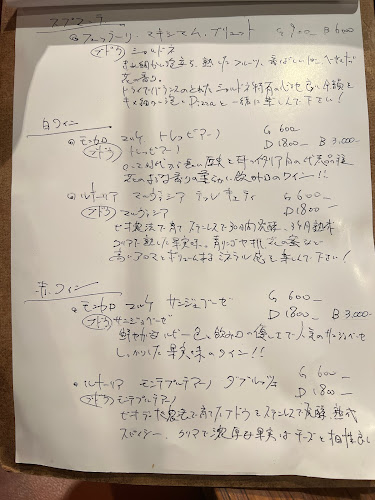 スプマンテ
フェッラーリ・マキシマム・ブリュット G 900 B 6000
ブドウ シャルドネ
きめ細かい泡立ち、熟したフルーツ、
花の香り。
ドライでバランスのとれたシャルドネ特有の心地良い余韻と
キメ細かい泡をPizzaと一緒に楽しんで下さい!
白ワイン
モンカロ マルケ トレッビアーノ G 600
ブドウ トレッビアーノ D 1800- B 3,000-
ローマ時代から長い歴史と イタリアの代表品種
花のような香りの柔らかい飲み口のワイン!!
マルヴァジア G 600-
ブドウ マルヴァジア D 1800-
農法で育て ステンレスで30日間発酵、3ヶ月熟成
クリアで熟した果実味。
高いアロマとボリュームあるミネラル感を楽しんで下さい!
赤ワイン
モンカロ マルケ サンジョヴェーゼ G 600-
ブドウ サンジョヴェーゼ D 1800- B 3,000-
鮮やかなルビー色、飲み口の優しさで人気のサンジョベーゼ
しっかりした果実味のワイン!!
モンテプルチアーノ ダブルッツォ G 600-
ブドウ モンテプルチアーノ D 1800-
農法で育てたブドウをステンレスで発酵 熟成
スパイシー、クリアで濃厚な果実はチーズと相性良し